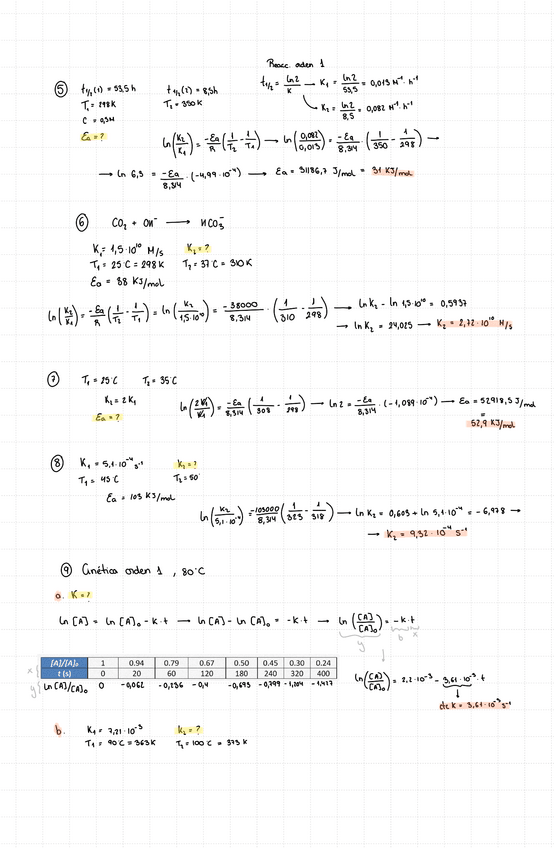 Reacc. orden 1
⑤ t1/2(1) = 53,5 h   t1/2(2) = 8,5h   t1/2 = ln2/K → K1 = ln2/53,5 = 0,013 M⁻¹·h⁻¹
T1 = 298K   T2 = 350K
K2 = ln2/8,5 = 0,082 M⁻¹·h⁻¹
C = 0,3M
Ea = ?   ln(K2/K1) = -Ea/R (1/T2 - 1/T1) → ln(0,082/0,013) = -Ea/8,314 · (1/350 - 1/298) →
→ ln 6,3 = -Ea/8,314 · (-4,99·10⁻⁴) → Ea = 31186,7 J/mol = 31 KJ/mol
⑥ CO2 + OH⁻ → HCO3⁻
K1 = 1,5·10¹⁰ M/s   K2 = ?
T1 = 25°C = 298K   T2 = 37°C = 310K
Ea = 38 KJ/mol
ln(K2/K1) = -Ea/R (1/T2 - 1/T1) = ln(K2/1,5·10¹⁰) = -38000/8,314 · (1/310 - 1/298) → ln K2 - ln 1,5·10¹⁰ = 0,5937
→ ln K2 = 24,025 → K2 = 2,72·10¹⁰ M/s
⑦ T1 = 25°C   T2 = 35°C
K2 = 2K1
Ea = ?   ln(2K1/K1) = -Ea/8,314 (1/308 - 1/298) → ln 2 = -Ea/8,314 · (-1,089·10⁻⁴) → Ea = 52918,5 J/mol
=
52,9 KJ/mol
⑧ K1 = 5,1·10⁻⁴ s⁻¹   K2 = ?
T1 = 45°C   T2 = 50°
Ea = 103 KJ/mol
ln(K2/5,1·10⁻⁴) = -103000/8,314 (1/323 - 1/318) → ln K2 = 0,603 + ln 5,1·10⁻⁴ = -6,978 →
→ K2 = 9,32·10⁻⁴ s⁻¹
⑨ Cinética orden 1 , 80°C
a. K = ?
ln [A] = ln [A]0 - K·t → ln [A] - ln [A]0 = -K·t → ln ([A]/[A]0) = -K·t
y   b   x
x [A]/[A]0 1 0.94 0.79 0.67 0.50 0.45 0.30 0.24
t (s) 0 20 60 120 180 240 320 400
y ln [A]/[A]0 0 -0,062 -0,236 -0,4 -0,693 -0,799 -1,204 -1,417
ln([A]/[A]0) = 2,2·10⁻³ - 3,61·10⁻³·t
cte K = 3,61·10⁻³ s⁻¹
b. K1 = 7,21·10⁻³   K2 = ?
T1 = 90°C = 363K   T2 = 100°C = 373K